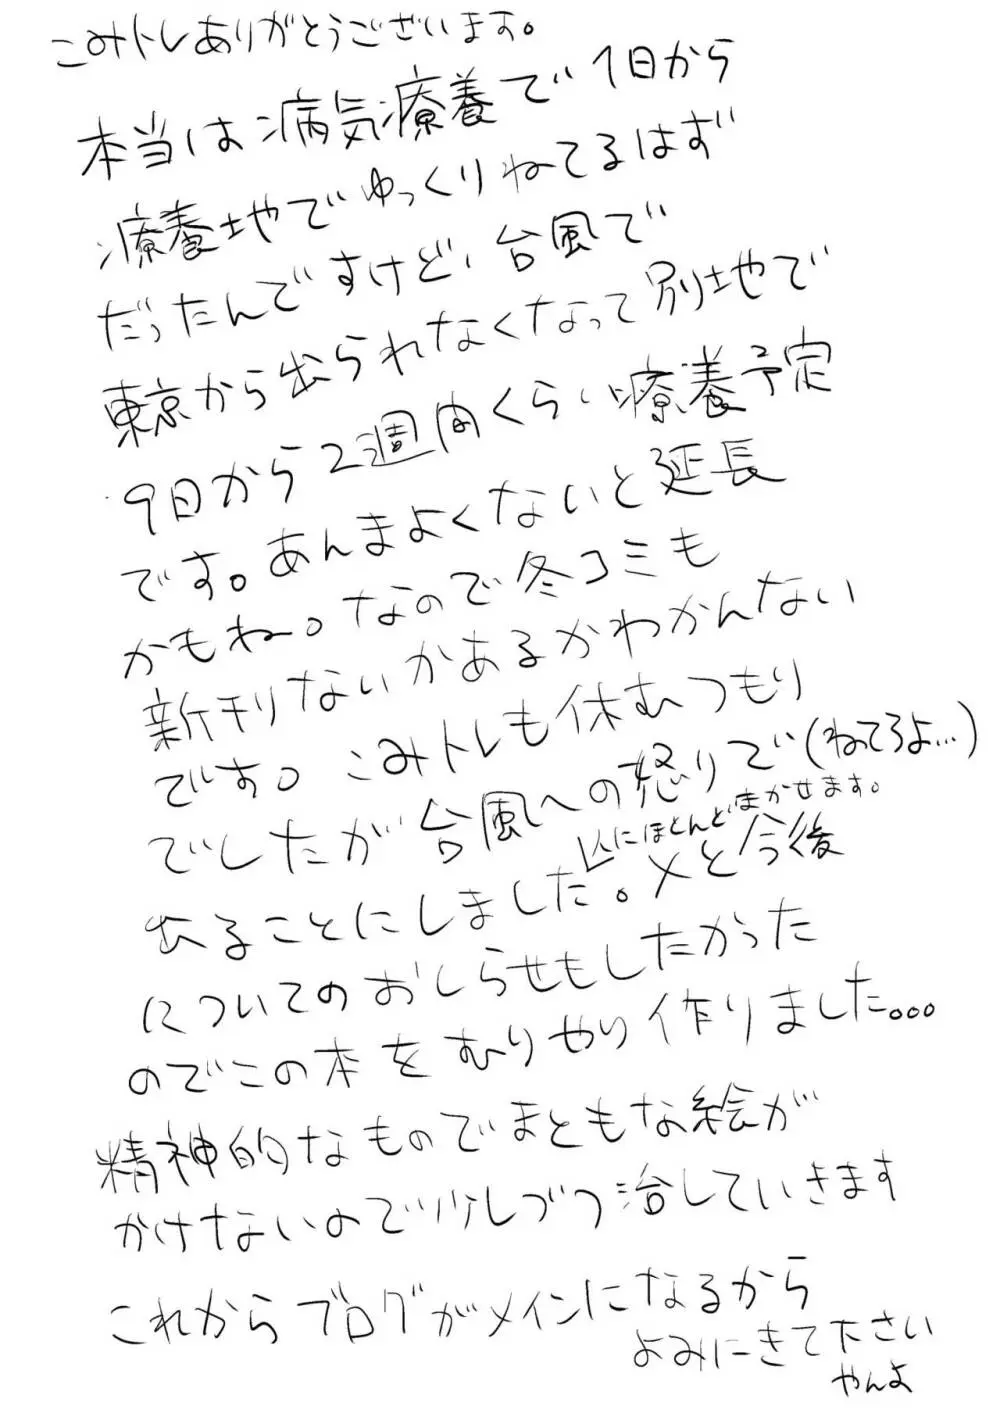 こみトレありがとうございます。
本当は病気療養で1日から
療養地でゆっくりねてるはず
だったんですけど、台風で
東京から出られなくなって別地で
9日から2週間くらい療養予定
です。あんまよくないと延長
かもね。なので冬コミも
新刊ないかあるかわかんない
です。こみトレも休むつもり
でしたが台風への怒りで(ねてろよ…)
出ることにしました。〆と今後
人にほとんどまかせます。
についてのおしらせもしたかった
のでこの本をむりやり作りました。。。
精神的なものでまともな絵が
かけないので少しづつ治していきます
これからブログがメインになるから
よみにきて下さい
やんよ